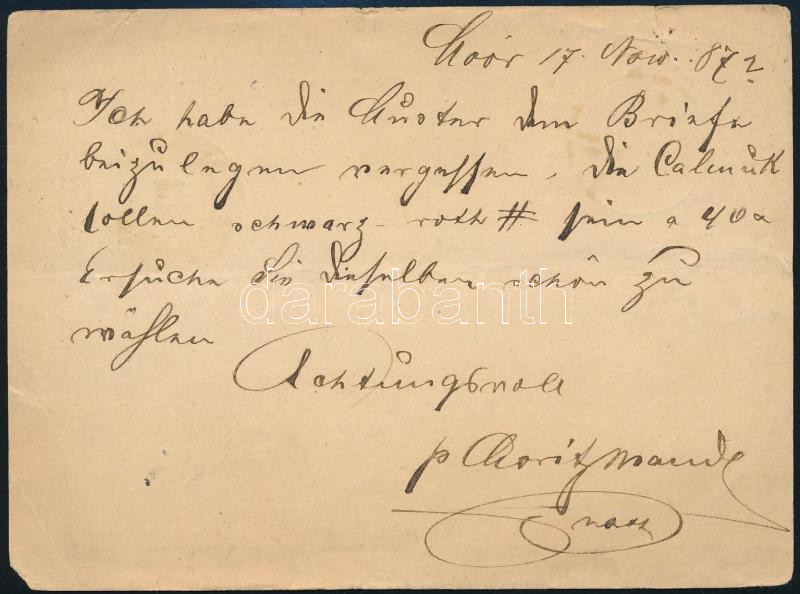 Moór 17. Nov. 872
Ich habe die Muster dem Briefe
beizulegen vergessen, die Calmuk
sollen schwarz-roth # sein a 40
Ersuche Sie dieselben schön zu
darabanth
wählen
Achtungsvoll
p Moritz Mandl